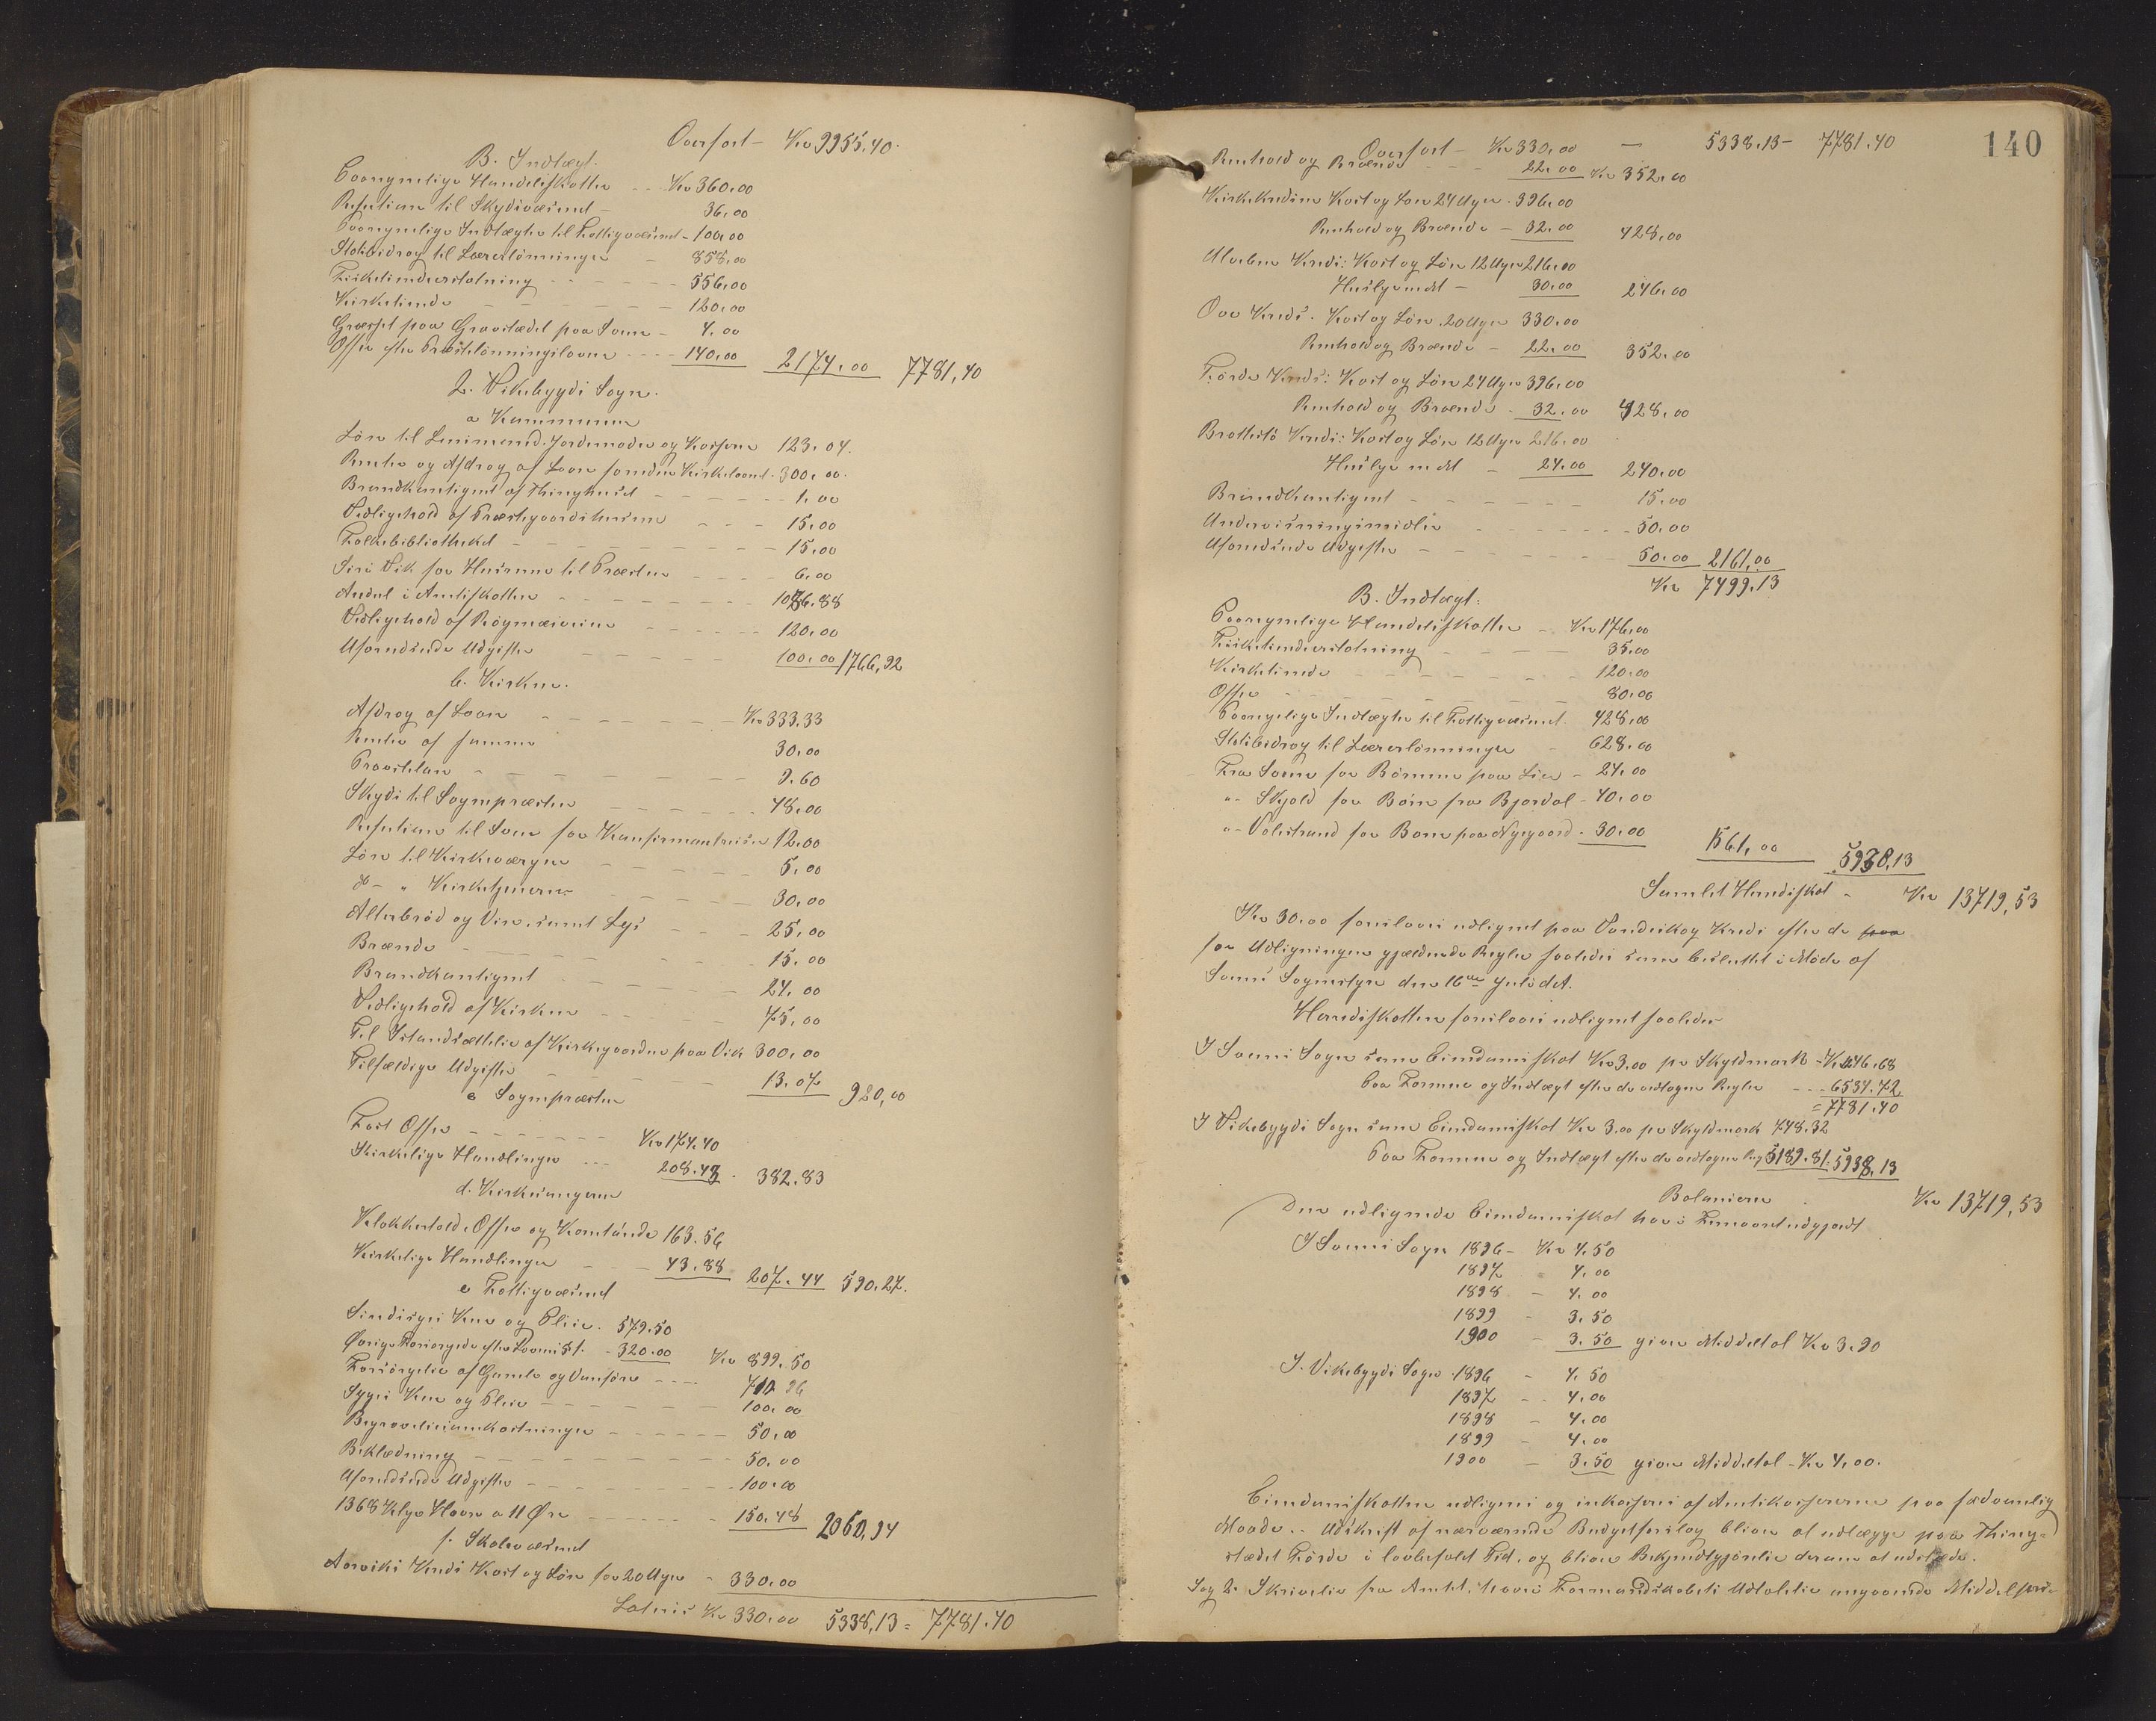 Overført – Kr 9955.40.
B. Indtægt.
Uvangivelige Handelsskatter – – Kr 360,00
Refusion til Skydsvæsenet – 36,00
Indtægter til Fattigvæsenet – 100,00
Skolebidrag til Lærerlønninger – 858,00
Fisketiendeerstatning – – – – 556,00
Kirketiende – – – – 120,00
Græsset paa Gravstedet paa Sveen – 4,00
Offer efter Præstelønningsloven – – – 140,00 2174,00 7781,40
2. Vikebygds Sogn.
a Kommunen
Løn til Lensmand, Jordemoder og Kasserer 123.04.
Renter og Afdrag af Laan foruden Kirkelaanet. 300,00.
Brandkontigent af Thinghuset – – – – 1,00
Vedligehold af Præstegaardshusene – – – 15,00
Folkebibliotheket – – – – 15,00
Siri Vik for Husrum til Præsten – – – 6,00
Andel i Amtsskatten – – – – 1086.88
Vedligehold af – – – – 120,00
Uforudseede Udgifter – – – – 100,00 1766,92
b. Kirken.
Afdrag af Laan – – – – Kr 333,33
Renter af samme 30,00
– – – – 9.60
Skyds til Sognepræsten – – – – 48,00
Refusion til Sveen for Konfirmantreiser 12,00
Løn til Kirkeværgen – – – – 5,00
do – „ Kirketjeneren – – – – 30,00
Alterbrød og Vin, samt Lys – – – 25,00
Brænde – – – – 15,00
Brandkontigent – – – – 24,00
Vedligehold af Kirken – – – – 75,00
Til Istandsættelse af Kirkegaarden paa Vik 300,00
Tilfældige Udgifter – – – – 13.07 920,00
c Sognepræsten
Fast Offer – – – – Kr 174.40
Kirkelige Handlinger – – – 208.43 382.83
d. Kirkesangeren
Klokkertold, Offer og 163.56
Kirkelige Handlinger – – – 43.88 207.44 590.27.
e Fattigvæsenet
Sindssyges Kur og Pleie. 579.50
Øvrige – 320.00 Kr 899.50
Forsørgelse af Gamle og Vanføre – – – 710 96
Syges Kur og Pleie – – – – 100,00
Begravelsesomkostninger – – – – 50,00
Beklædning – – – – 50,00
Uforudseede Udgifter – – – – 100,00
1368 Kilo Havre a 11 Øre – – – – 150.48 2060,94
f. Skolevæsenet
Aarviks Kreds Kost og Løn for 20 Uger – 330,00
Lateris Kr 330,00 5338,13 = 7781.40
140
Overført – Kr 330,00 – 5338.13 – 7781.40
Renhold og Brænde – – 22,00 Kr 352,00
Kirkekredsen Kost og Løn 24 Uger. 396,00
Renhold og Brænde – 32,00 428,00
Kreds: Kost og Løn 12 Uger 216,00
Husleje m dt – 30,00 246,00
Kreds. Kost og Løn 20 Uger 330,00
Renhold og Brænde – 22,00 352,00
Førde Kreds: Kost og Løn 24 Uger 396,00
Renhold og Brænde – 32,00 428,00
Kreds: Kost og Løn 12 Uger 216,00
Husleje m dt – 24,00 240,00
Brandkontigent – – – – 15,00
Undervisningsmidler – – – – 50,00
Uforudseede Udgifter – – – – 50,00 2161,00
Kr 7499.13
B. Indtægt.
Handelsskatter – Kr 176,00
Fisketiendeerstatning – – – 35,00
Kirketiende – – – – 120,00
Offer – – – – 80,00
Indtægter til Fattigvæsenet. 428,00
Skolebidrag til Lærerlønninger – 628,00
Fra Sveen for Børnene paa Lien – 24,00
„– Skjold for Børn fra Bjordal – 40,00
„– Valestrand for Børn paa Nygaard – 30,00 1561,00 5938,13
Samlet Herredsskat – Kr 13719,53
Kr 30,00 foreslaaes udlignet paa Vandviks Kreds efter de paa
for Udligningen gjældende Regler saaledes som besluttet i Møde af
Sveens Sognestyre den 16de Juli d.A.
Herredsskatten foreslaaes udlignet saaledes
I Sveens Sogn som Eiendomsskat Kr 3,00 pr Skyldmark – Kr 1246.68
Paa Formue og Indtægt efter de vedtagne Regler – – – 6534.72
= 7781.40
I Vikebygds Sogn som Eiendomsskat Kr 3.00 pr Skyldmark 748.32
Paa Formue og Indtægt efter de vedtagne Regl 5189.81 5938,13
Balancerer Kr 13719,53
Den udlignede Eiendomsskat har i Femaaret udgjort
I Sveens Sogn 1896 – Kr 4.50
1897 – 4.00
1898 – 4.00
1899 – 3.50
1900 – 3.50 giver Middeltal Kr 3.90
I Vikebygds Sogn 1896 – 4.50
1897 – 4.00
1898 – 4.00
1899 – 4.00
1900 – 3.50 giver Middeltal – Kr 4,00.
Eiendomsskatten udlignes og inkasseres af Amtskassereren paa sædvanlig
Maade. – Udskrift af nærværende Budgetforslag bliver at udlægge paa Thing-
stedet Førde i lovbefalet Tid, og bliver Bekjendtgjørelse derom at udstede.
Sag 2. Skrivelse fra Amtet, hvori Formandskabets Udtalelse angaaende